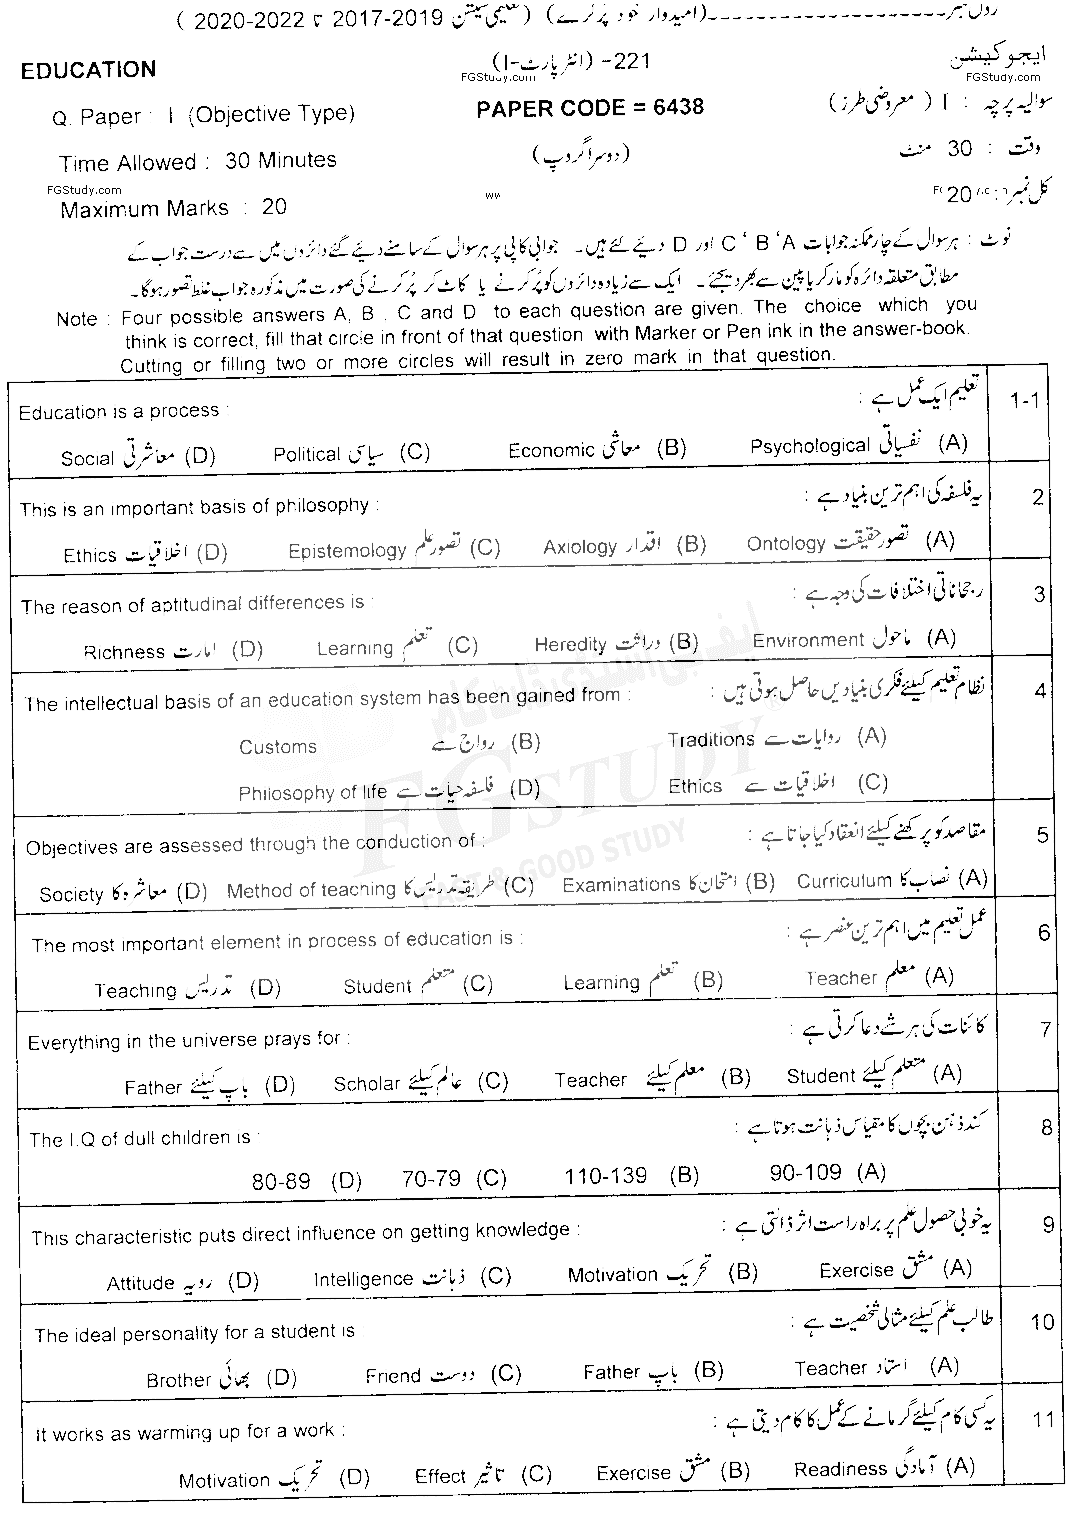 رول نمبر ---------------- (امیدوار خود پُر کرے) ( تعلیمی سیشن 2019-2017 تا 2022-2020 )
EDUCATION 221- (انٹر پارٹ-I) ایجوکیشن
FGStudy.com FGStudy.com
Q. Paper : I (Objective Type) PAPER CODE = 6438 سوالیہ پرچہ : I ( معروضی طرز)
Time Allowed : 30 Minutes (دوسرا گروپ) وقت : 30 منٹ
FGStudy.com
Maximum Marks : 20 کل نمبر : 20
نوٹ : ہر سوال کے چار ممکنہ جوابات A ' B ' C اور D دیئے گئے ہیں۔ جوابی کاپی پر ہر سوال کے سامنے دیئے گئے دائروں میں سے درست جواب کے
مطابق متعلقہ دائرہ کو مارکر یا پین سے بھر دیجئے۔ ایک سے زیادہ دائروں کو پُر کرنے یا کاٹ کر پُر کرنے کی صورت میں مذکورہ جواب غلط تصور ہوگا۔
Note : Four possible answers A, B , C and D to each question are given. The choice which you
think is correct, fill that circle in front of that question with Marker or Pen ink in the answer-book.
Cutting or filling two or more circles will result in zero mark in that question.
1-1 تعلیم ایک عمل ہے :
Education is a process :
(A) نفسیاتی Psychological (B) معاشی Economic (C) سیاسی Political (D) معاشرتی Social
2 یہ فلسفہ کی اہم ترین بنیاد ہے :
This is an important basis of philosophy :
(A) تصور حقیقت Ontology (B) اقدار Axiology (C) تصور علم Epistemology (D) اخلاقیات Ethics
3 رجحاناتی اختلافات کی وجہ ہے :
The reason of aptitudinal differences is :
(A) ماحول Environment (B) وراثت Heredity (C) تعلم Learning (D) امارت Richness
4 نظام تعلیم کیلئے فکری بنیادیں حاصل ہوتی ہیں :
The intellectual basis of an education system has been gained from :
(A) روایات سے Traditions (B) رواج سے Customs
(C) اخلاقیات سے Ethics (D) فلسفہ حیات سے Philosophy of life
5 مقاصد کو پرکھنے کیلئے انعقاد کیا جاتا ہے :
Objectives are assessed through the conduction of :
(A) نصاب کا Curriculum (B) امتحان کا Examinations (C) طریقہ تدریس کا Method of teaching (D) معاشرہ کا Society
6 عمل تعلیم میں اہم ترین عنصر ہے :
The most important element in process of education is :
(A) معلم Teacher (B) تعلم Learning (C) متعلم Student (D) تدریس Teaching
7 کائنات کی ہر شے دعا کرتی ہے :
Everything in the universe prays for :
(A) متعلم کیلئے Student (B) معلم کیلئے Teacher (C) عالم کیلئے Scholar (D) باپ کیلئے Father
8 کند ذہن بچوں کا مقیاس ذہانت ہوتا ہے :
The I.Q of dull children is :
(A) 90-109 (B) 110-139 (C) 70-79 (D) 80-89
9 یہ خوبی حصول علم پر براہ راست اثر ڈالتی ہے :
This characteristic puts direct influence on getting knowledge :
(A) مشق Exercise (B) تحریک Motivation (C) ذہانت Intelligence (D) رویہ Attitude
10 طالب علم کیلئے مثالی شخصیت ہے :
The ideal personality for a student is
(A) استاد Teacher (B) باپ Father (C) دوست Friend (D) بھائی Brother
11 یہ کسی کام کیلئے گرمانے کے عمل کا کام دیتی ہے :
It works as warming up for a work :
(A) آمادگی Readiness (B) مشق Exercise (C) تاثیر Effect (D) تحریک Motivation
ایف جی اسٹڈی ڈاٹ کام
FGSTUDY
FAST & GOOD STUDY